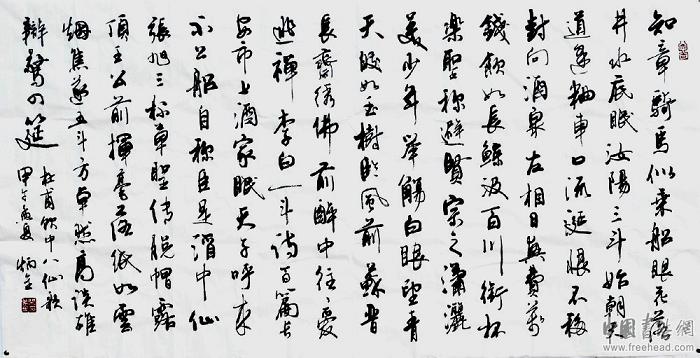 知章騎馬似乘船眼花落
井水底眠汝陽三斗始朝天
道逢麯車口流涎恨不移
封向酒泉左相日興費萬
錢飲如長鯨汲百川銜杯
樂聖称避賢宗之瀟灑
美少年舉觴白眼望青
天皎如玉樹臨風前蘇晋
長齋绣佛前醉中往〻愛
逃禪李白一斗诗百篇长
安市上酒家眠天子呼来
不上船自称臣是酒中仙
張旭三杯草聖传脱帽露
頂王公前揮毫落纸如雲
烟焦遂五斗方卓然高谈雄
辯驚四筵
杜甫飲中八仙歌
甲午夏
www.freehead.com